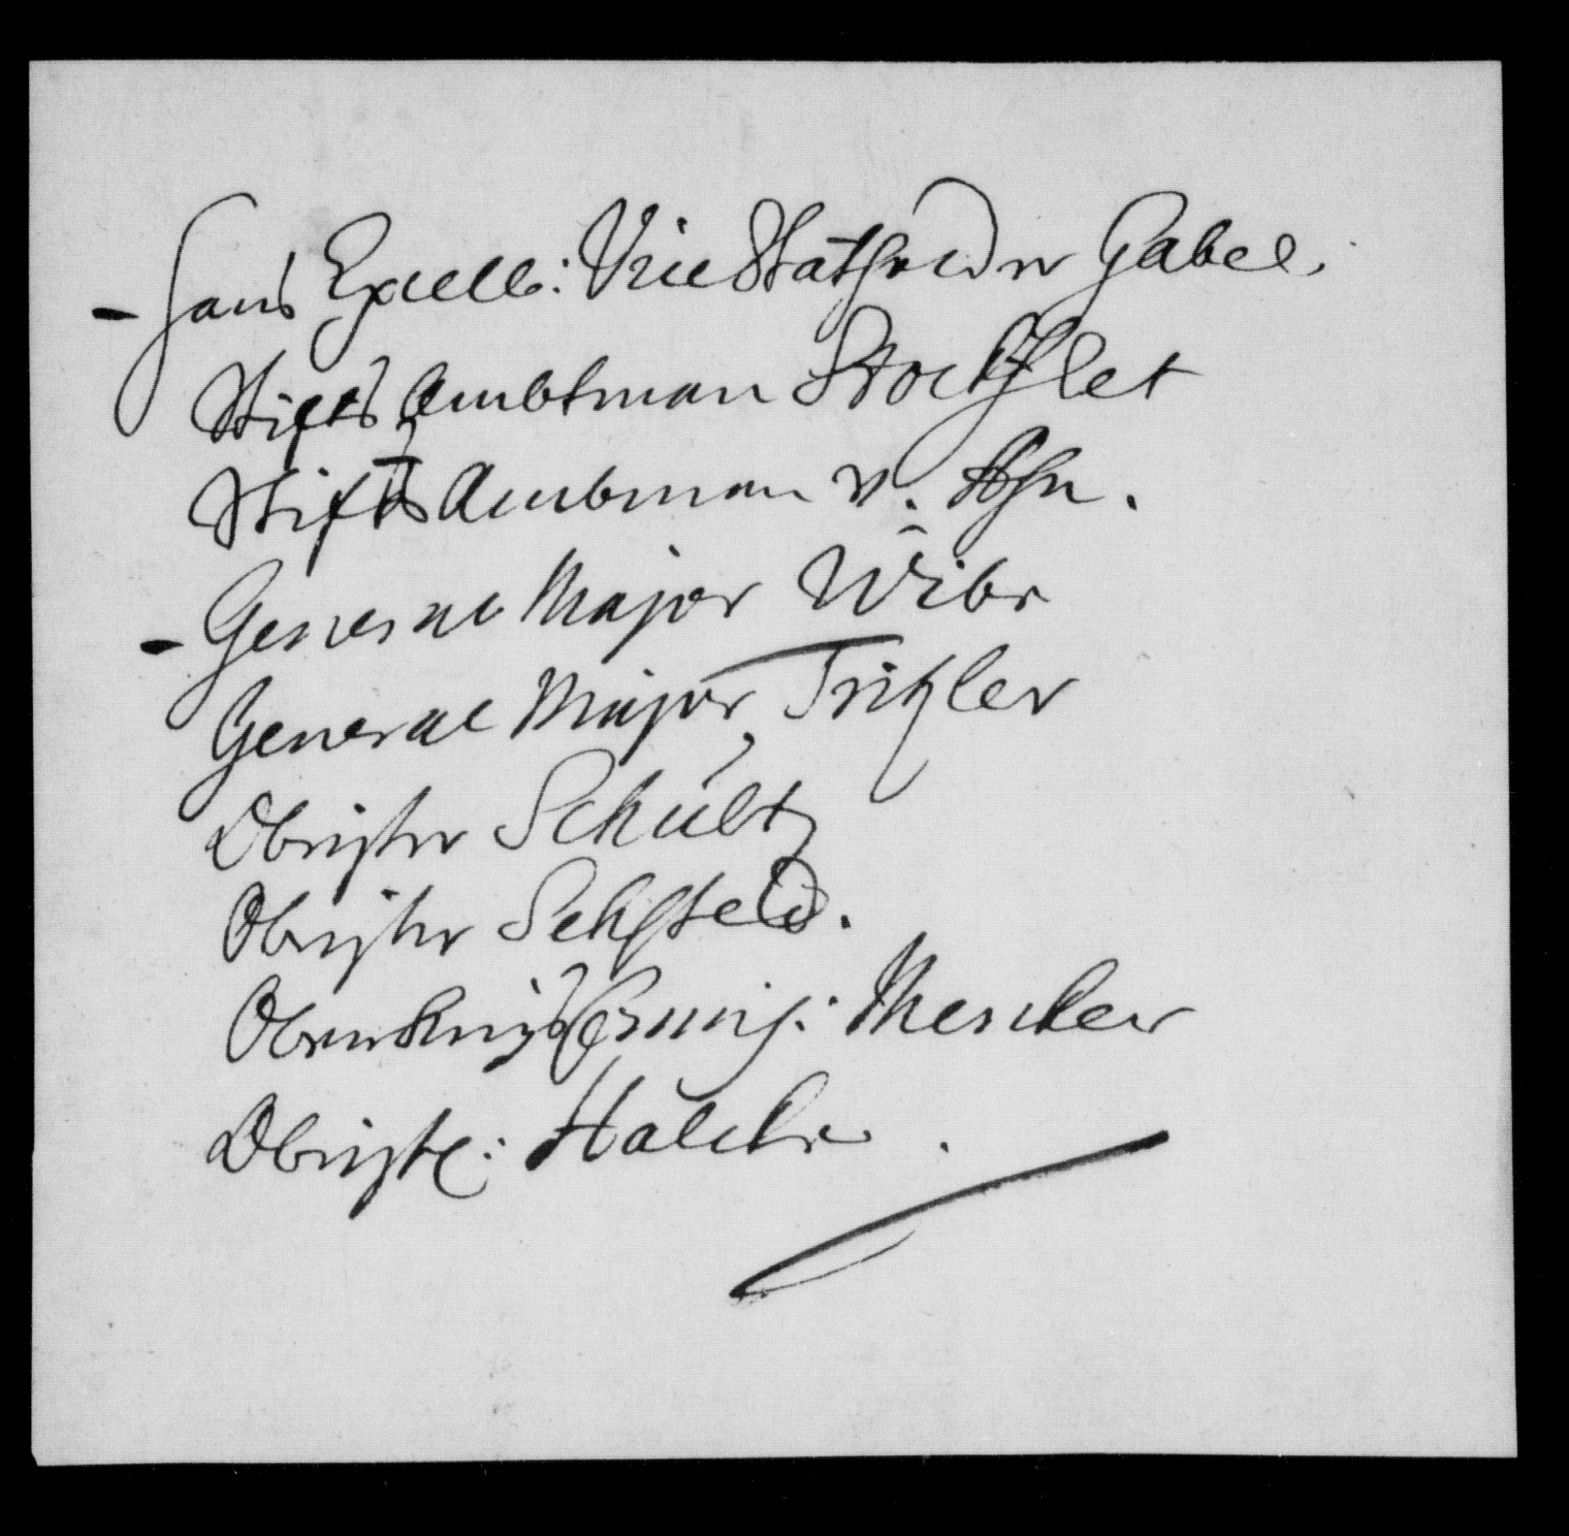 - Hans Excell: Vice Statholder Gabel.
Stifts Ambtman Stockflet
Stifts Ambman v. Ahn.
- General Major Wibe
General Major Tritzler
Obrister Schültz
Obrister Sehsted.
Ober Krigs Commis: Mercker
Obriste: